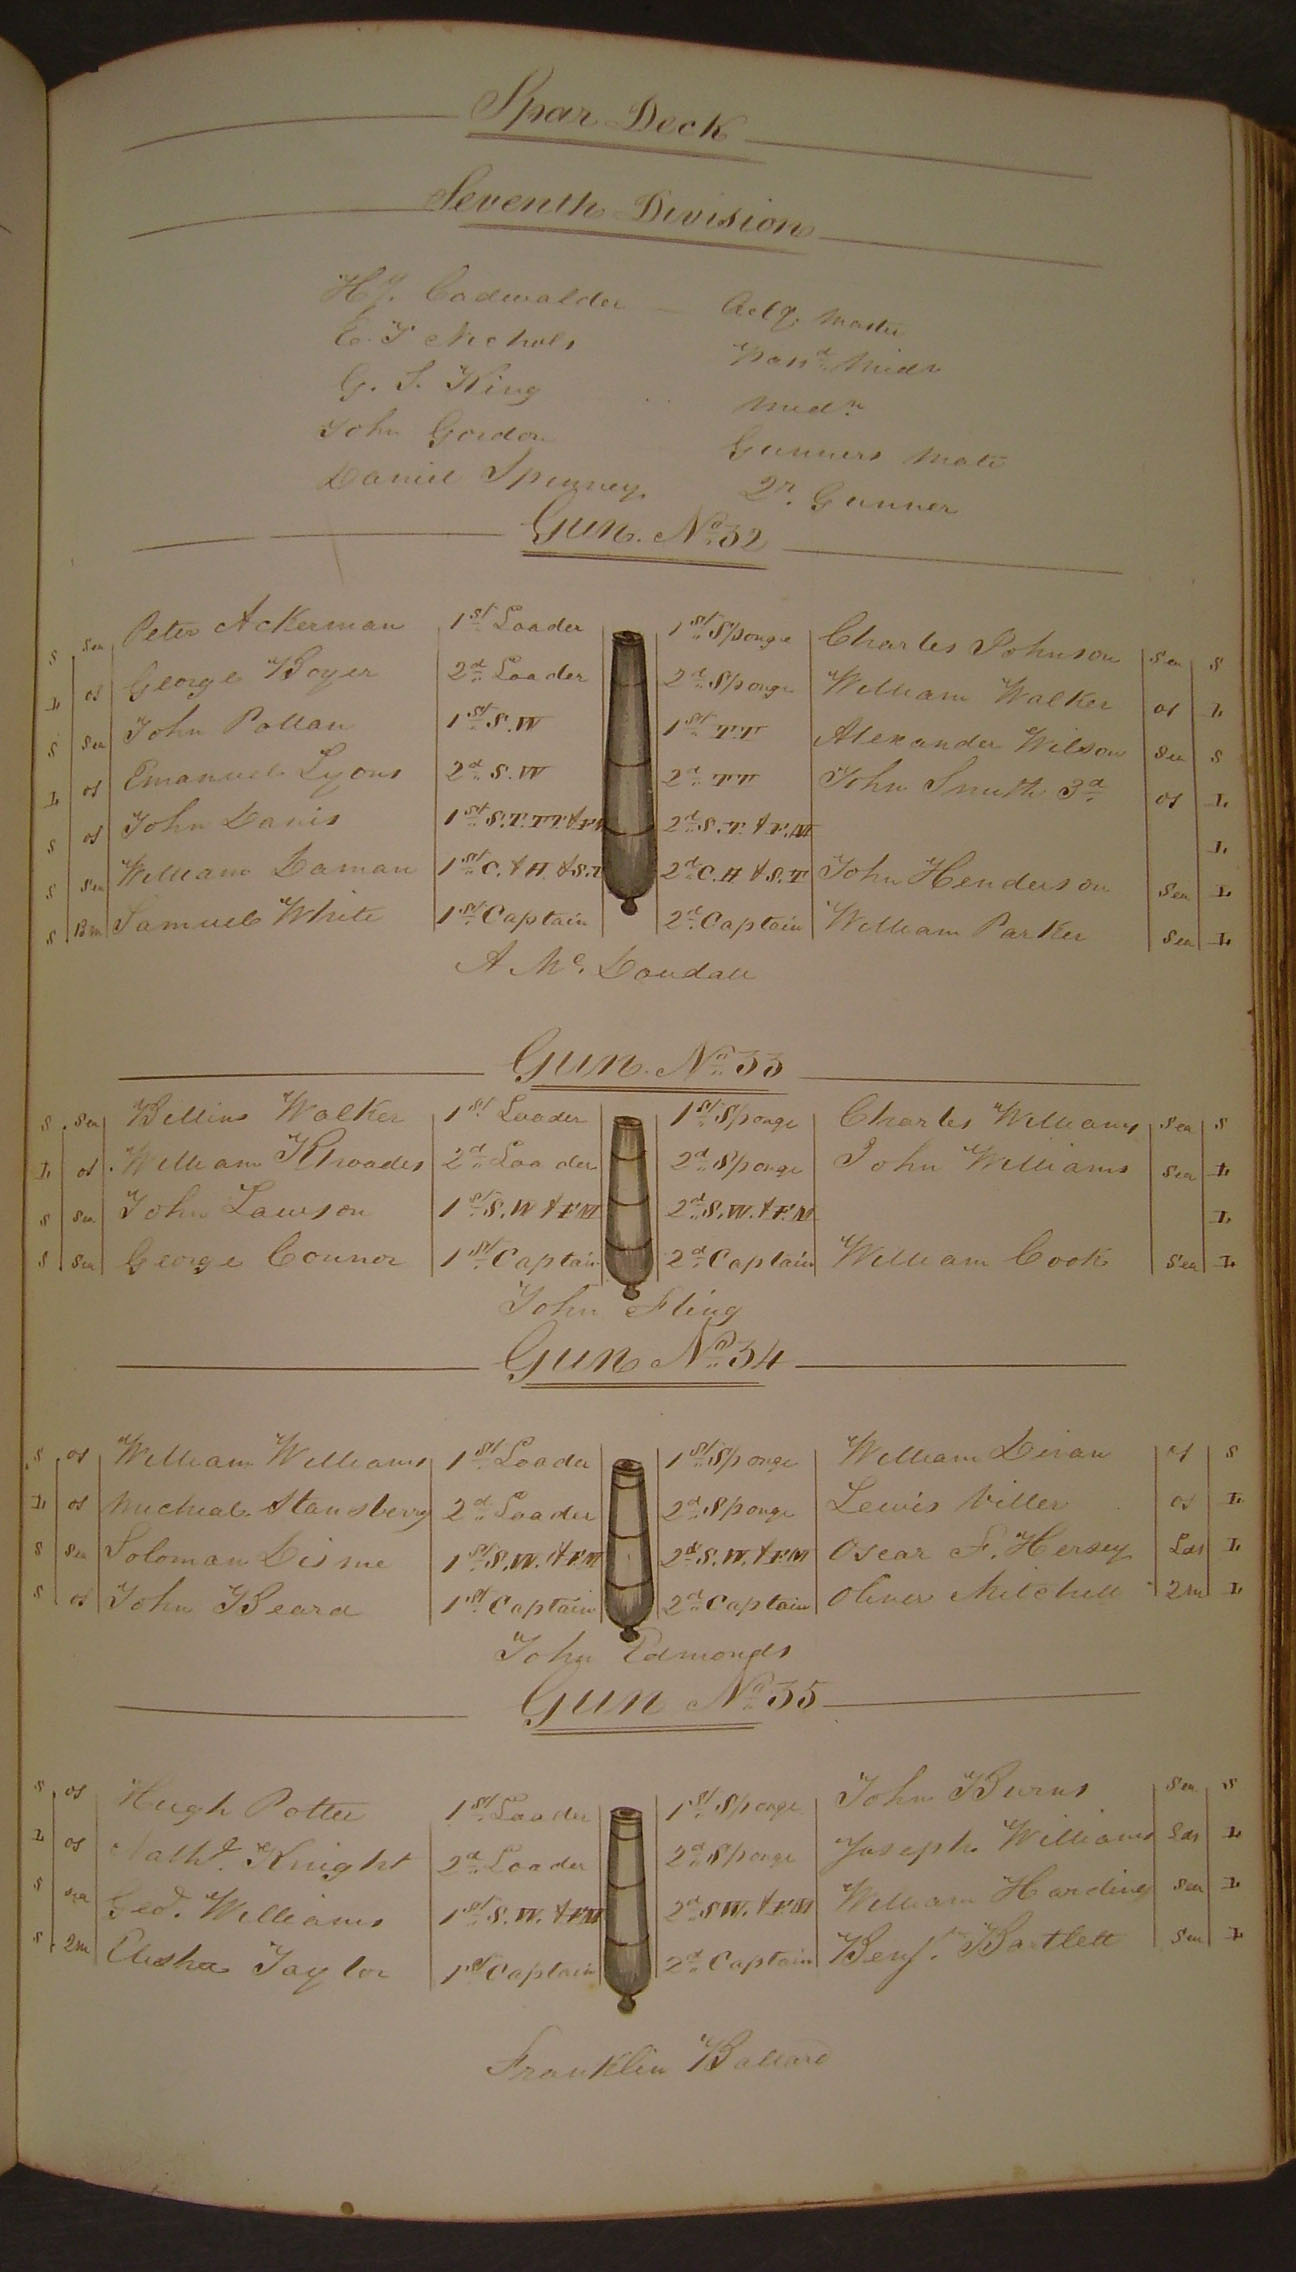 Spar Deck
Seventh Division
Hy. Cadwalder — Actg. Master
E. T Nichols Passd. Midn
G. S. King Midn.
John Gordon Gunners Mate
Daniel Spinney. Qr. Gunner
Gun. No. 32
S Sea Peter Ackerman 1st Loader 1st Sponge Charles Johnson Sea S
L OS George Boyer 2d Loader 2d Sponge William Walker OS L
S Sea John Pollau 1st S.W 1st TT Alexander Wilson Sea S
L OS Emanuel Lyons 2d S.W 2d TT John Smith 3d. OS L
S OS John Davis 1st S.T.TT & F 2d S.T. & F.M L
S Sea William Daman 1st C. & H & S.T 2d C.H & S.T John Henderson Sea L
S Bm Samuel White 1st Captain 2d Captain William Parker Sea L
A Mc. Doudall
Gun. No. 33
S Sea Billins Walker 1st Loader 1st Sponge Charles Williams Sea S
L OS William Rhoades 2d Loader 2d Sponge John Williams Sea L
S Sea John Lawson 1st S.W & F.M 2d S.W. & F.M L
S Sea George Connor 1st Captain 2d Captain William Cook Sea L
John Fling
Gun No. 34
S OS William Williams 1st Loader 1st Sponge William Divan OS S
L OS Micheal Stansberry 2d Loader 2d Sponge Lewis Viller OS L
S Sea Soloman Disme 1st S.W. & F.M 2d S.W. & F.M Oscar F. Hersey Lds L
S OS John Beard 1st Captain 2d Captain Oliver Mitchell 2m L
John Edmonds
Gun No. 35
S OS Hugh Potter 1st Loader 1st Sponge John Burns Sea S
L OS Nathl. Knight 2d Loader 2d Sponge Joseph Williams Lds L
S Sea Geo. Williams 1st S.W. & F.M 2d S.W. & F.M William Harding Sea L
S 2m Elisha Taylor 1st Captain 2d Captain Benj. Bartlett Sea L
Franklin Ballard